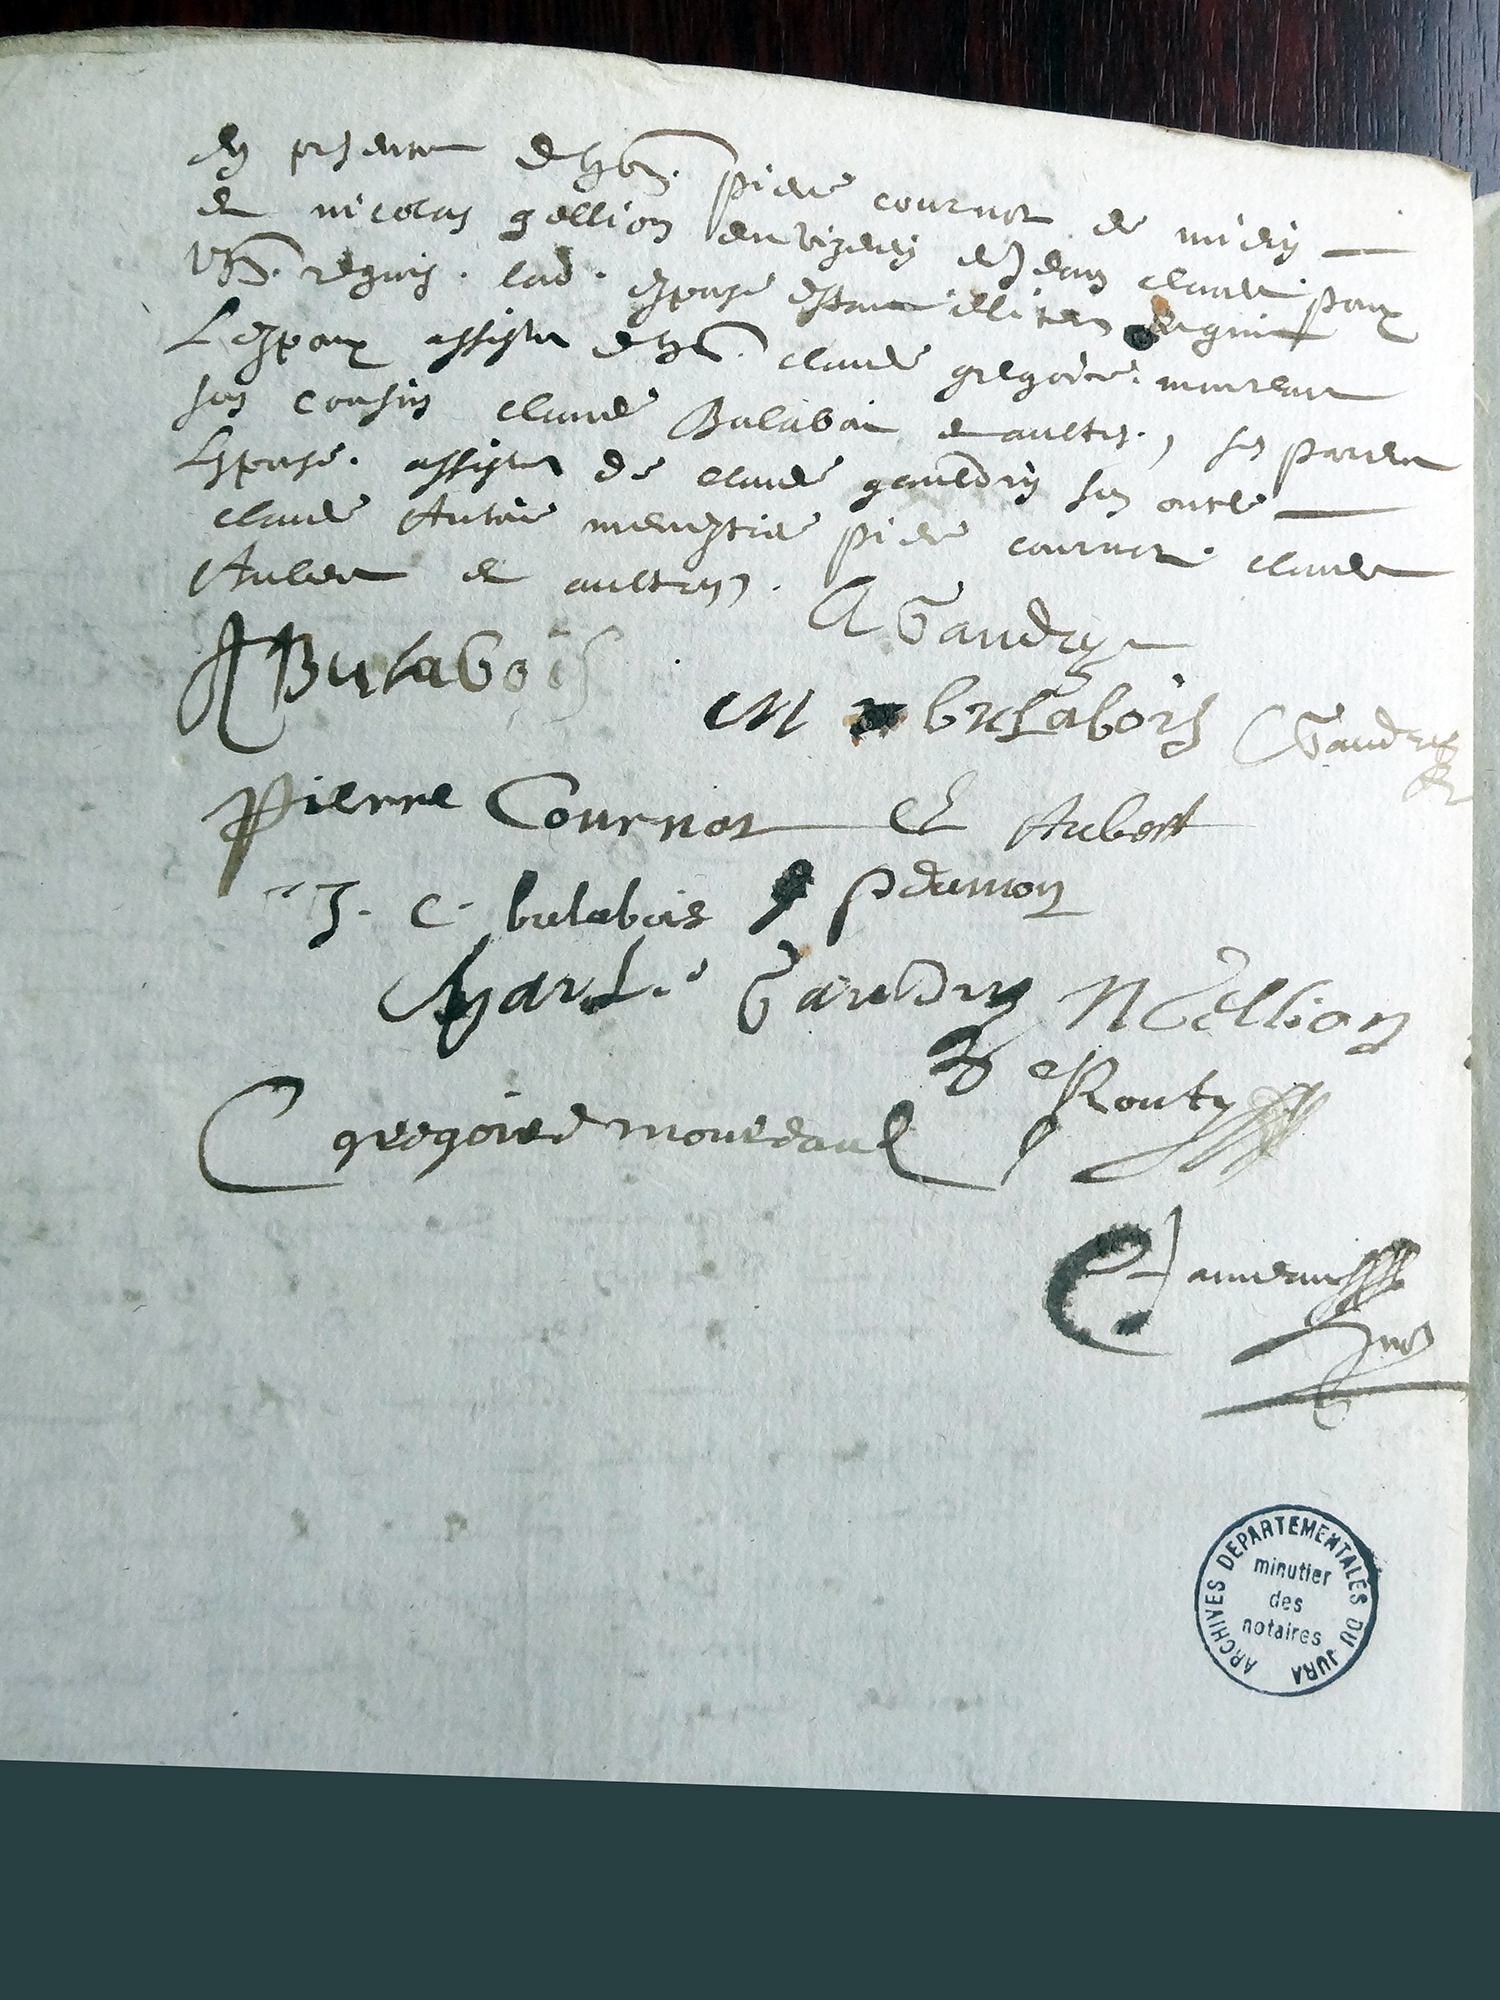 en presence d'hon. pierre cournot de miery
et nicolas gellion de jean claude
requis. lad. espouse estant illiteree requis
L'espoux assiste d'h. claude gregoire moureau
son cousin claude Bulaboi et aultres, ses parens
L'espouse. assistee de claude gauldry son oncle
claude Antoine menestrie pierre cournot. claude
Aubert et aultres.
A Gaudry
A Bulabois
M bulabois C Gaudry
Pierre Cournot C Aubert
J. C. bulabois P demon
Gaudry N Gellion
Routy
C gregoire moureaul
Janneau
ARCHIVES DEPARTEMENTALES DU JURA
minutier
des
notaires